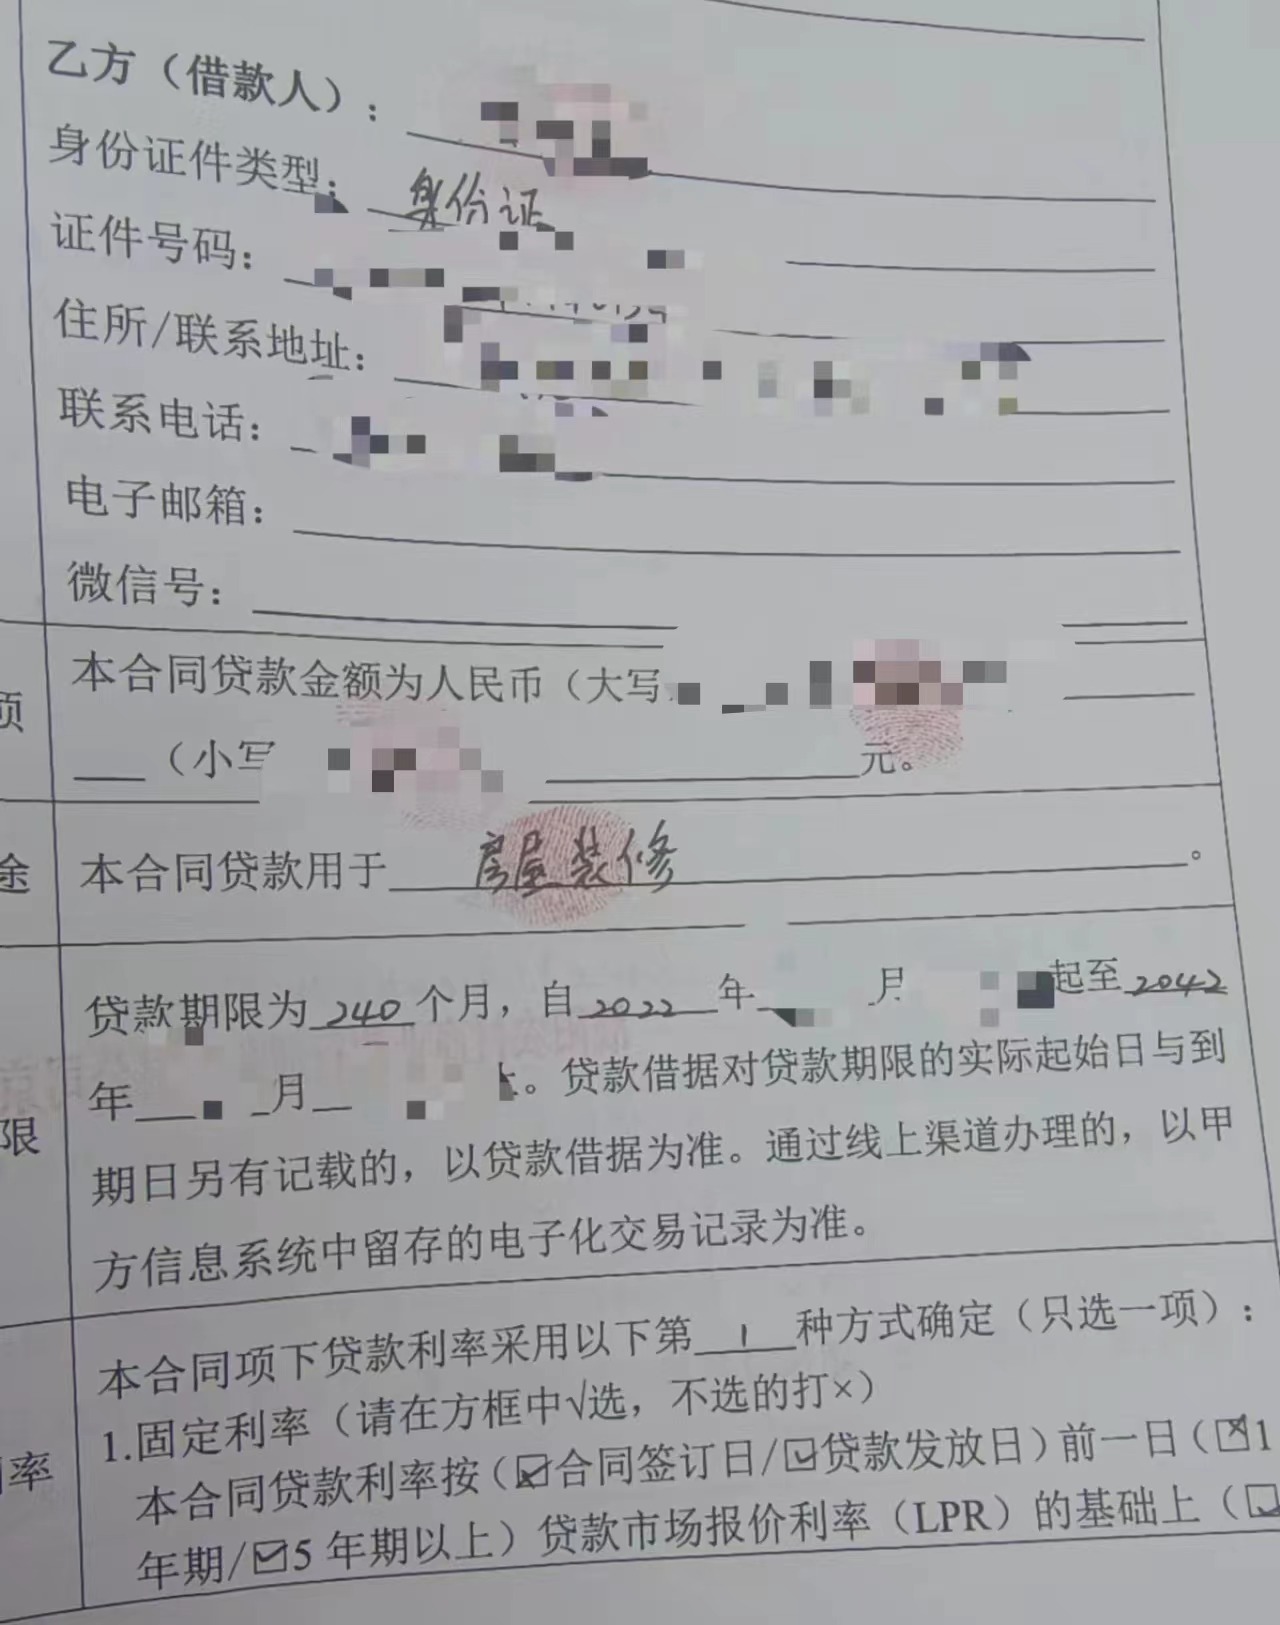 乙方（借款人）：
身份证件类型：身份证
证件号码：
住所/联系地址：
联系电话：
电子邮箱：
微信号：
项 本合同贷款金额为人民币（大写
（小写 元。
途 本合同贷款用于房屋装修。
贷款期限为240个月，自2022年 月 起至2042
年 月 。贷款借据对贷款期限的实际起始日与到
限 期日另有记载的，以贷款借据为准。通过线上渠道办理的，以甲
方信息系统中留存的电子化交易记录为准。
本合同项下贷款利率采用以下第1种方式确定（只选一项）：
1.固定利率（请在方框中√选，不选的打×）
率 本合同贷款利率按（☑合同签订日/☑贷款发放日）前一日（☒1
年期/☑5年期以上）贷款市场报价利率（LPR）的基础上（☑